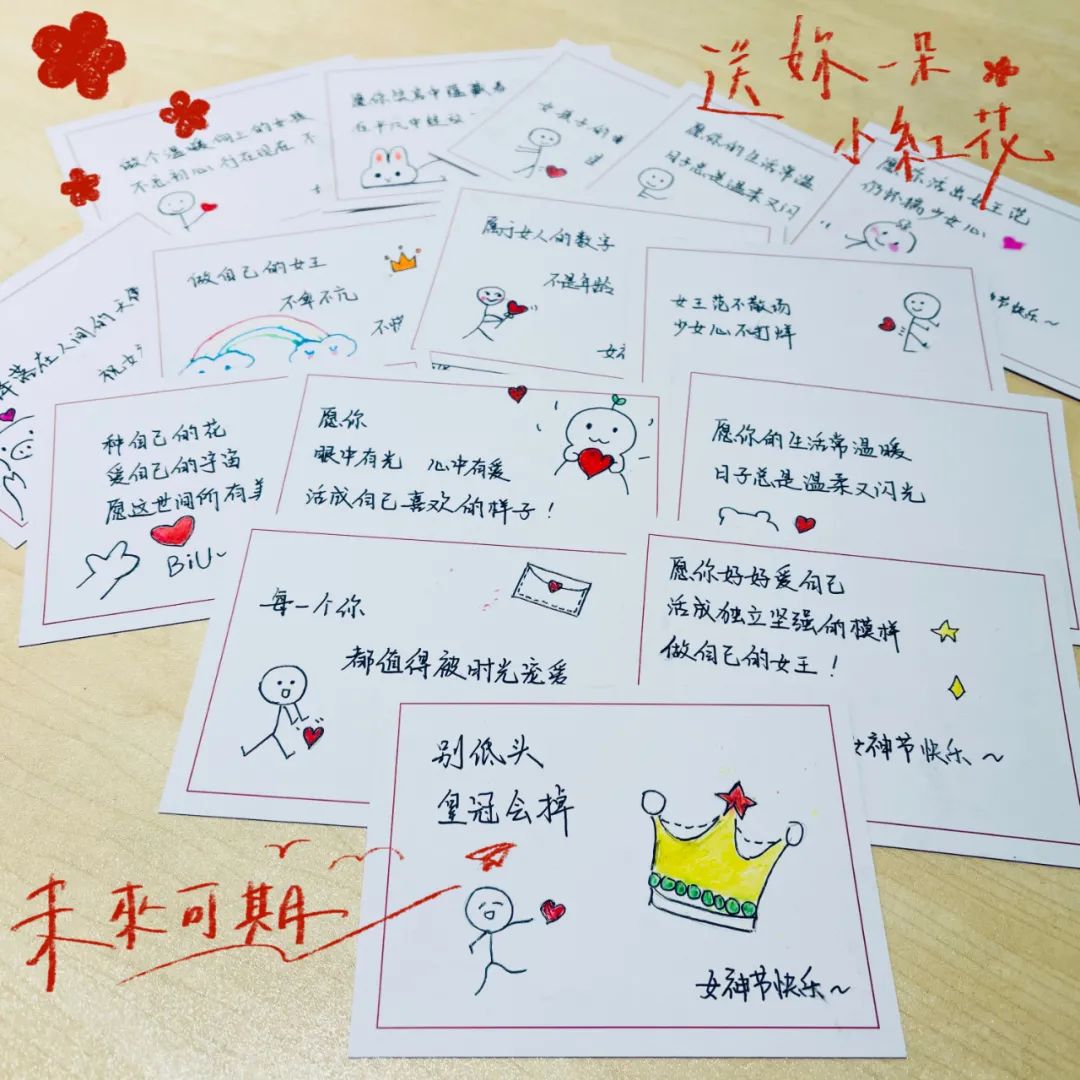 送妳一朵
小紅花
做个温暖向上的女孩
不忘初心 行在现在 不
愿你
在平凡中
女孩子的
愿你的生活常温
日子总是温柔又闪
愿你活出女王范
仍怀揣少女心
节快乐~
落在人间的天
祝女
做自己的女王
不卑不亢
不
属于女人的数字
不是年龄
女
女王范不散场
少女心不打烊
种自己的花
爱自己的宇宙
愿这世间所有美
BiU~
愿你
眼中有光 心中有爱
活成自己喜欢的样子!
愿你的生活常温暖
日子总是温柔又闪光
每一个你
都值得被时光宠爱
愿你好好爱自己
活成独立坚强的模样
做自己的女王!
女神节快乐~
别低头
皇冠会掉
女神节快乐~
未來可期